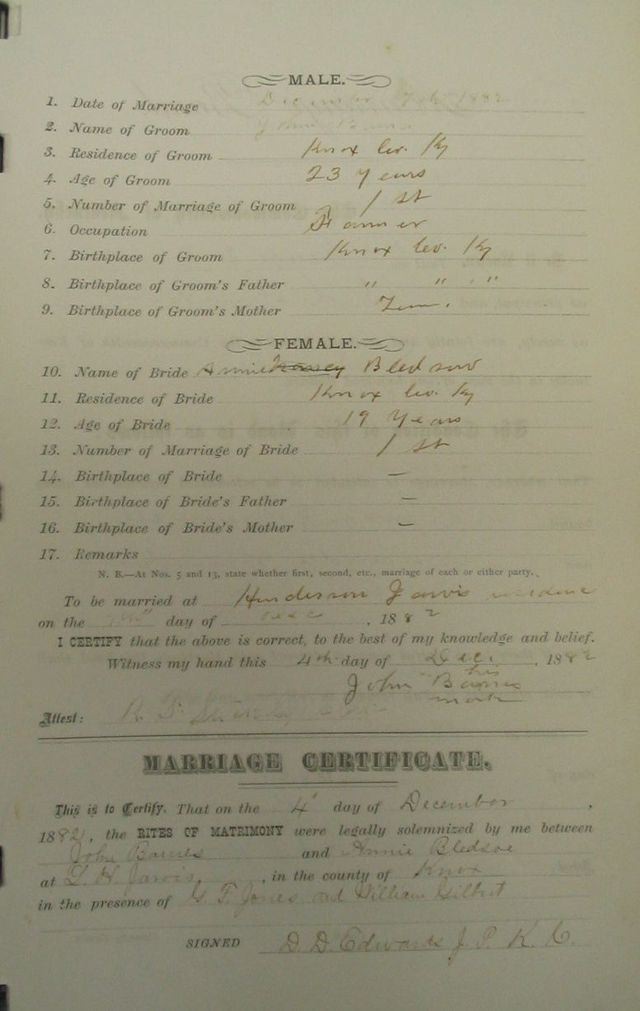 MALE.
1. Date of Marriage December 1882
2. Name of Groom John
3. Residence of Groom Knox Co. Ky
4. Age of Groom 23 years
5. Number of Marriage of Groom 1 st
6. Occupation Farmer
7. Birthplace of Groom Knox Co. Ky
8. Birthplace of Groom's Father " " "
9. Birthplace of Groom's Mother Tenn.
FEMALE.
10. Name of Bride Annie Bledsow
11. Residence of Bride Knox Co. Ky
12. Age of Bride 19 years
13. Number of Marriage of Bride 1 st
14. Birthplace of Bride —
15. Birthplace of Bride's Father —
16. Birthplace of Bride's Mother —
17. Remarks
N. B.—At Nos. 5 and 13, state whether first, second, etc., marriage of each or either party.
To be married at Henderson Jarvis residence
on the day of Dec , 1882
I CERTIFY that the above is correct, to the best of my knowledge and belief.
Witness my hand this 4th day of Dec. , 1882
his
John Barnes
mark
Attest:
MARRIAGE CERTIFICATE.
This is to Certify. That on the 4 day of December ,
1882, the RITES OF MATRIMONY were legally solemnized by me between
John Barnes and Annie Bledsoe
at Jarvis , in the county of Knox
in the presence of G. T. Jones and William Gilbert
SIGNED D. D. Edwards J. P. K. C.